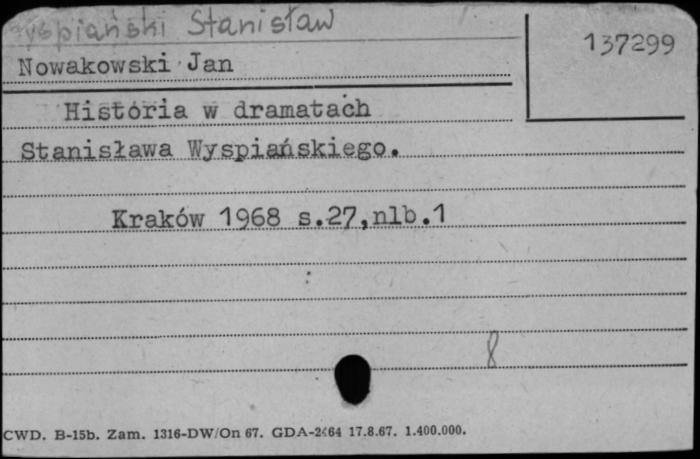 Wyspiański Stanisław
137299
Nowakowski Jan
Historia w dramatach
Stanisława Wyspiańskiego.
Kraków 1968 s.27,nlb.1
8
CWD. B-15b. Zam. 1316-DW/On 67. GDA-2464 17.8.67. 1.400.000.